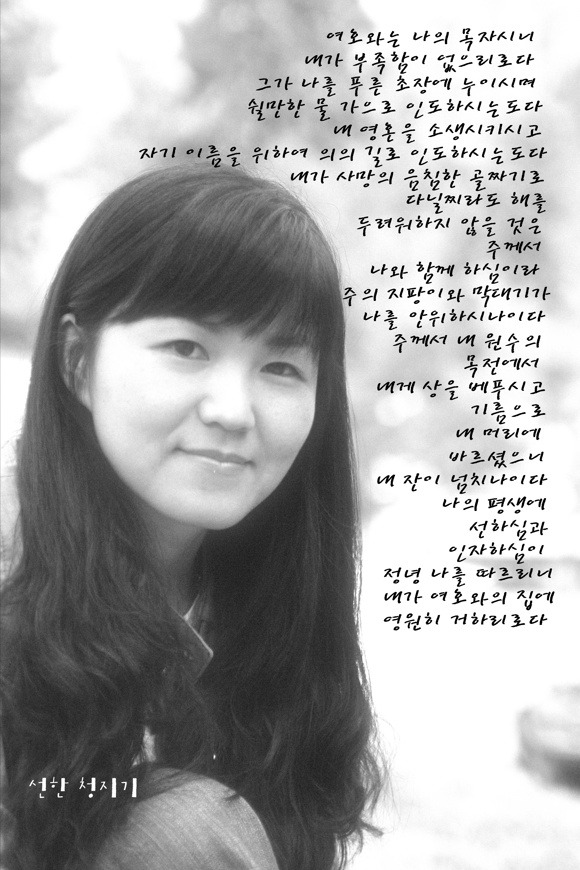 여호와는 나의 목자시니
내가 부족함이 없으리로다
그가 나를 푸른 초장에 누이시며
쉴만한 물 가으로 인도하시는도다
내 영혼을 소생시키시고
자기 이름을 위하여 의의 길로 인도하시는도다
내가 사망의 음침한 골짜기로
다닐찌라도 해를
두려워하지 않을 것은
주께서
나와 함께 하심이라
주의 지팡이와 막대기가
나를 안위하시나이다
주께서 내 원수의
목전에서
내게 상을 베푸시고
기름으로
내 머리에
바르셨으니
내 잔이 넘치나이다
나의 평생에
선하심과
인자하심이
정녕 나를 따르리니
내가 여호와의 집에
영원히 거하리로다
선한 청지기